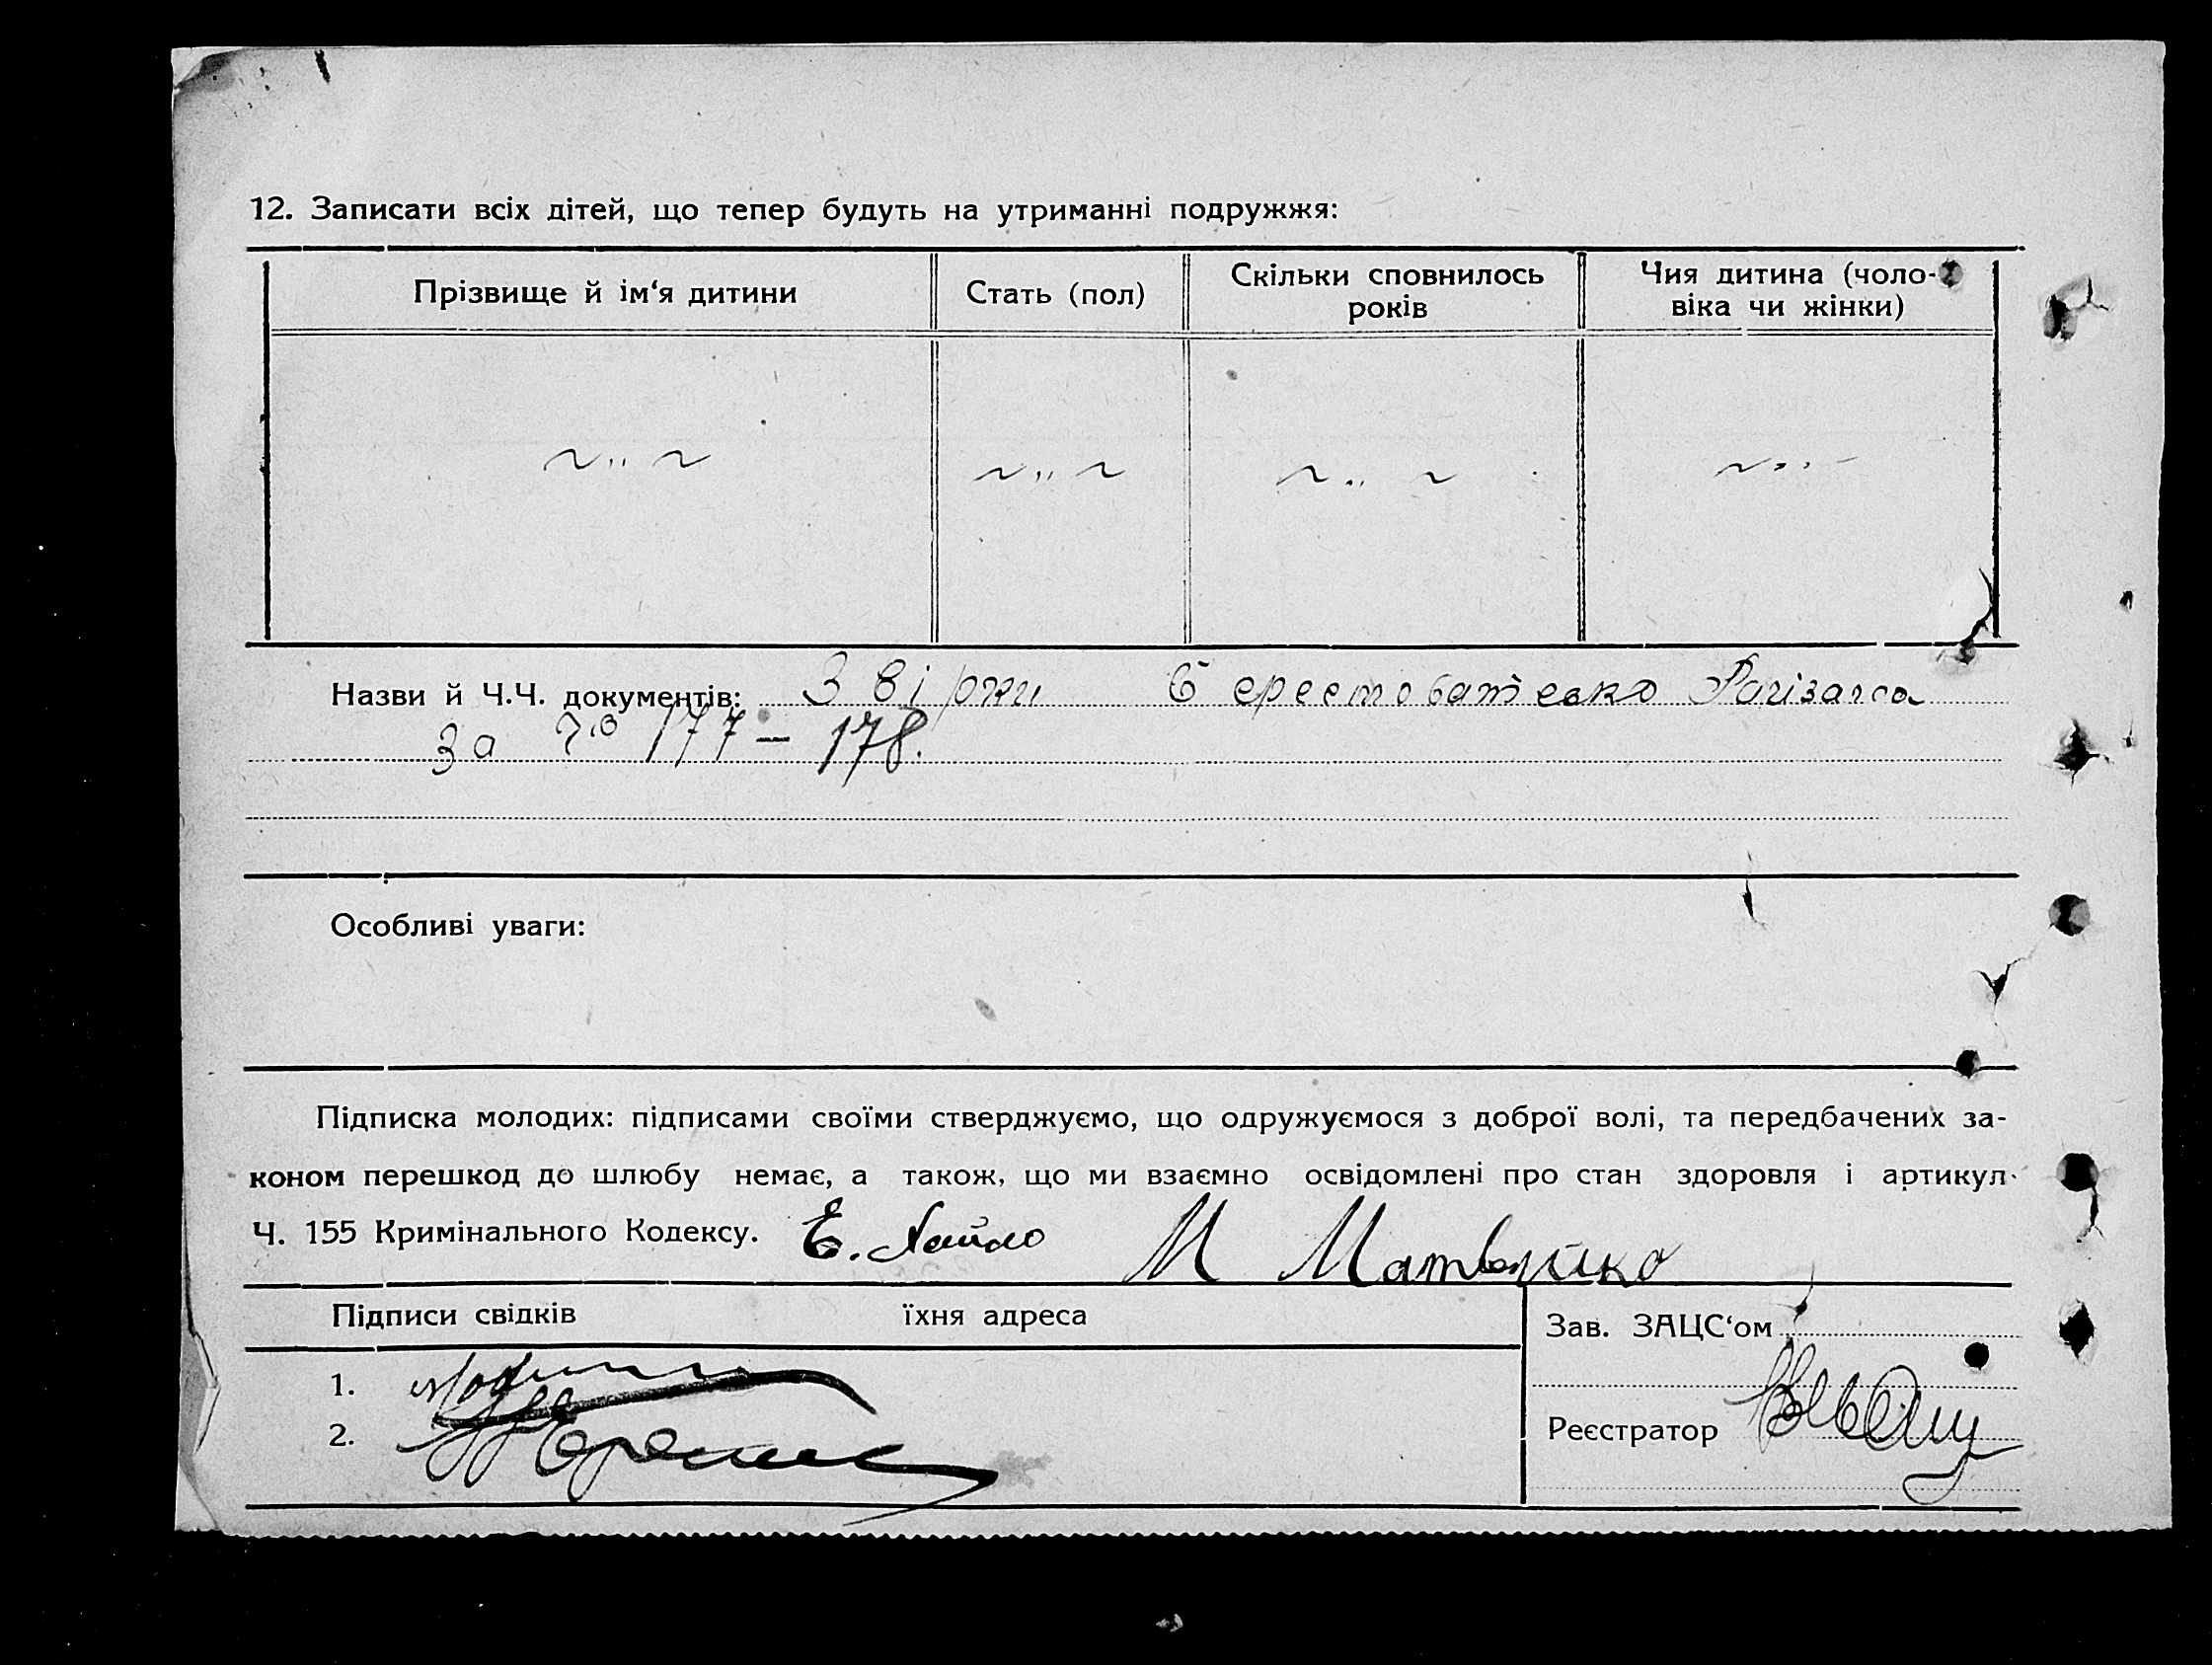 12. Записати всіх дітей, що тепер будуть на утриманні подружжя:
Прізвище й ім‘я дитини
Стать (пол)
Скільки сповнилось
років
Чия дитина (чоло-
віка чи жінки)
Назви й Ч.Ч. документів:
за № 177 – 178.
Особливі уваги:
Підписка молодих: підписами своїми стверджуємо, що одружуємося з доброї волі, та передбачених за-
коном перешкод до шлюбу немає, а також, що ми взаємно освідомлені про стан здоровля і артикул
Ч. 155 Кримінального Кодексу. М
Підписи свідків їхня адреса
Зав. ЗАЦС‘ом
1.
2.
Реєстратор